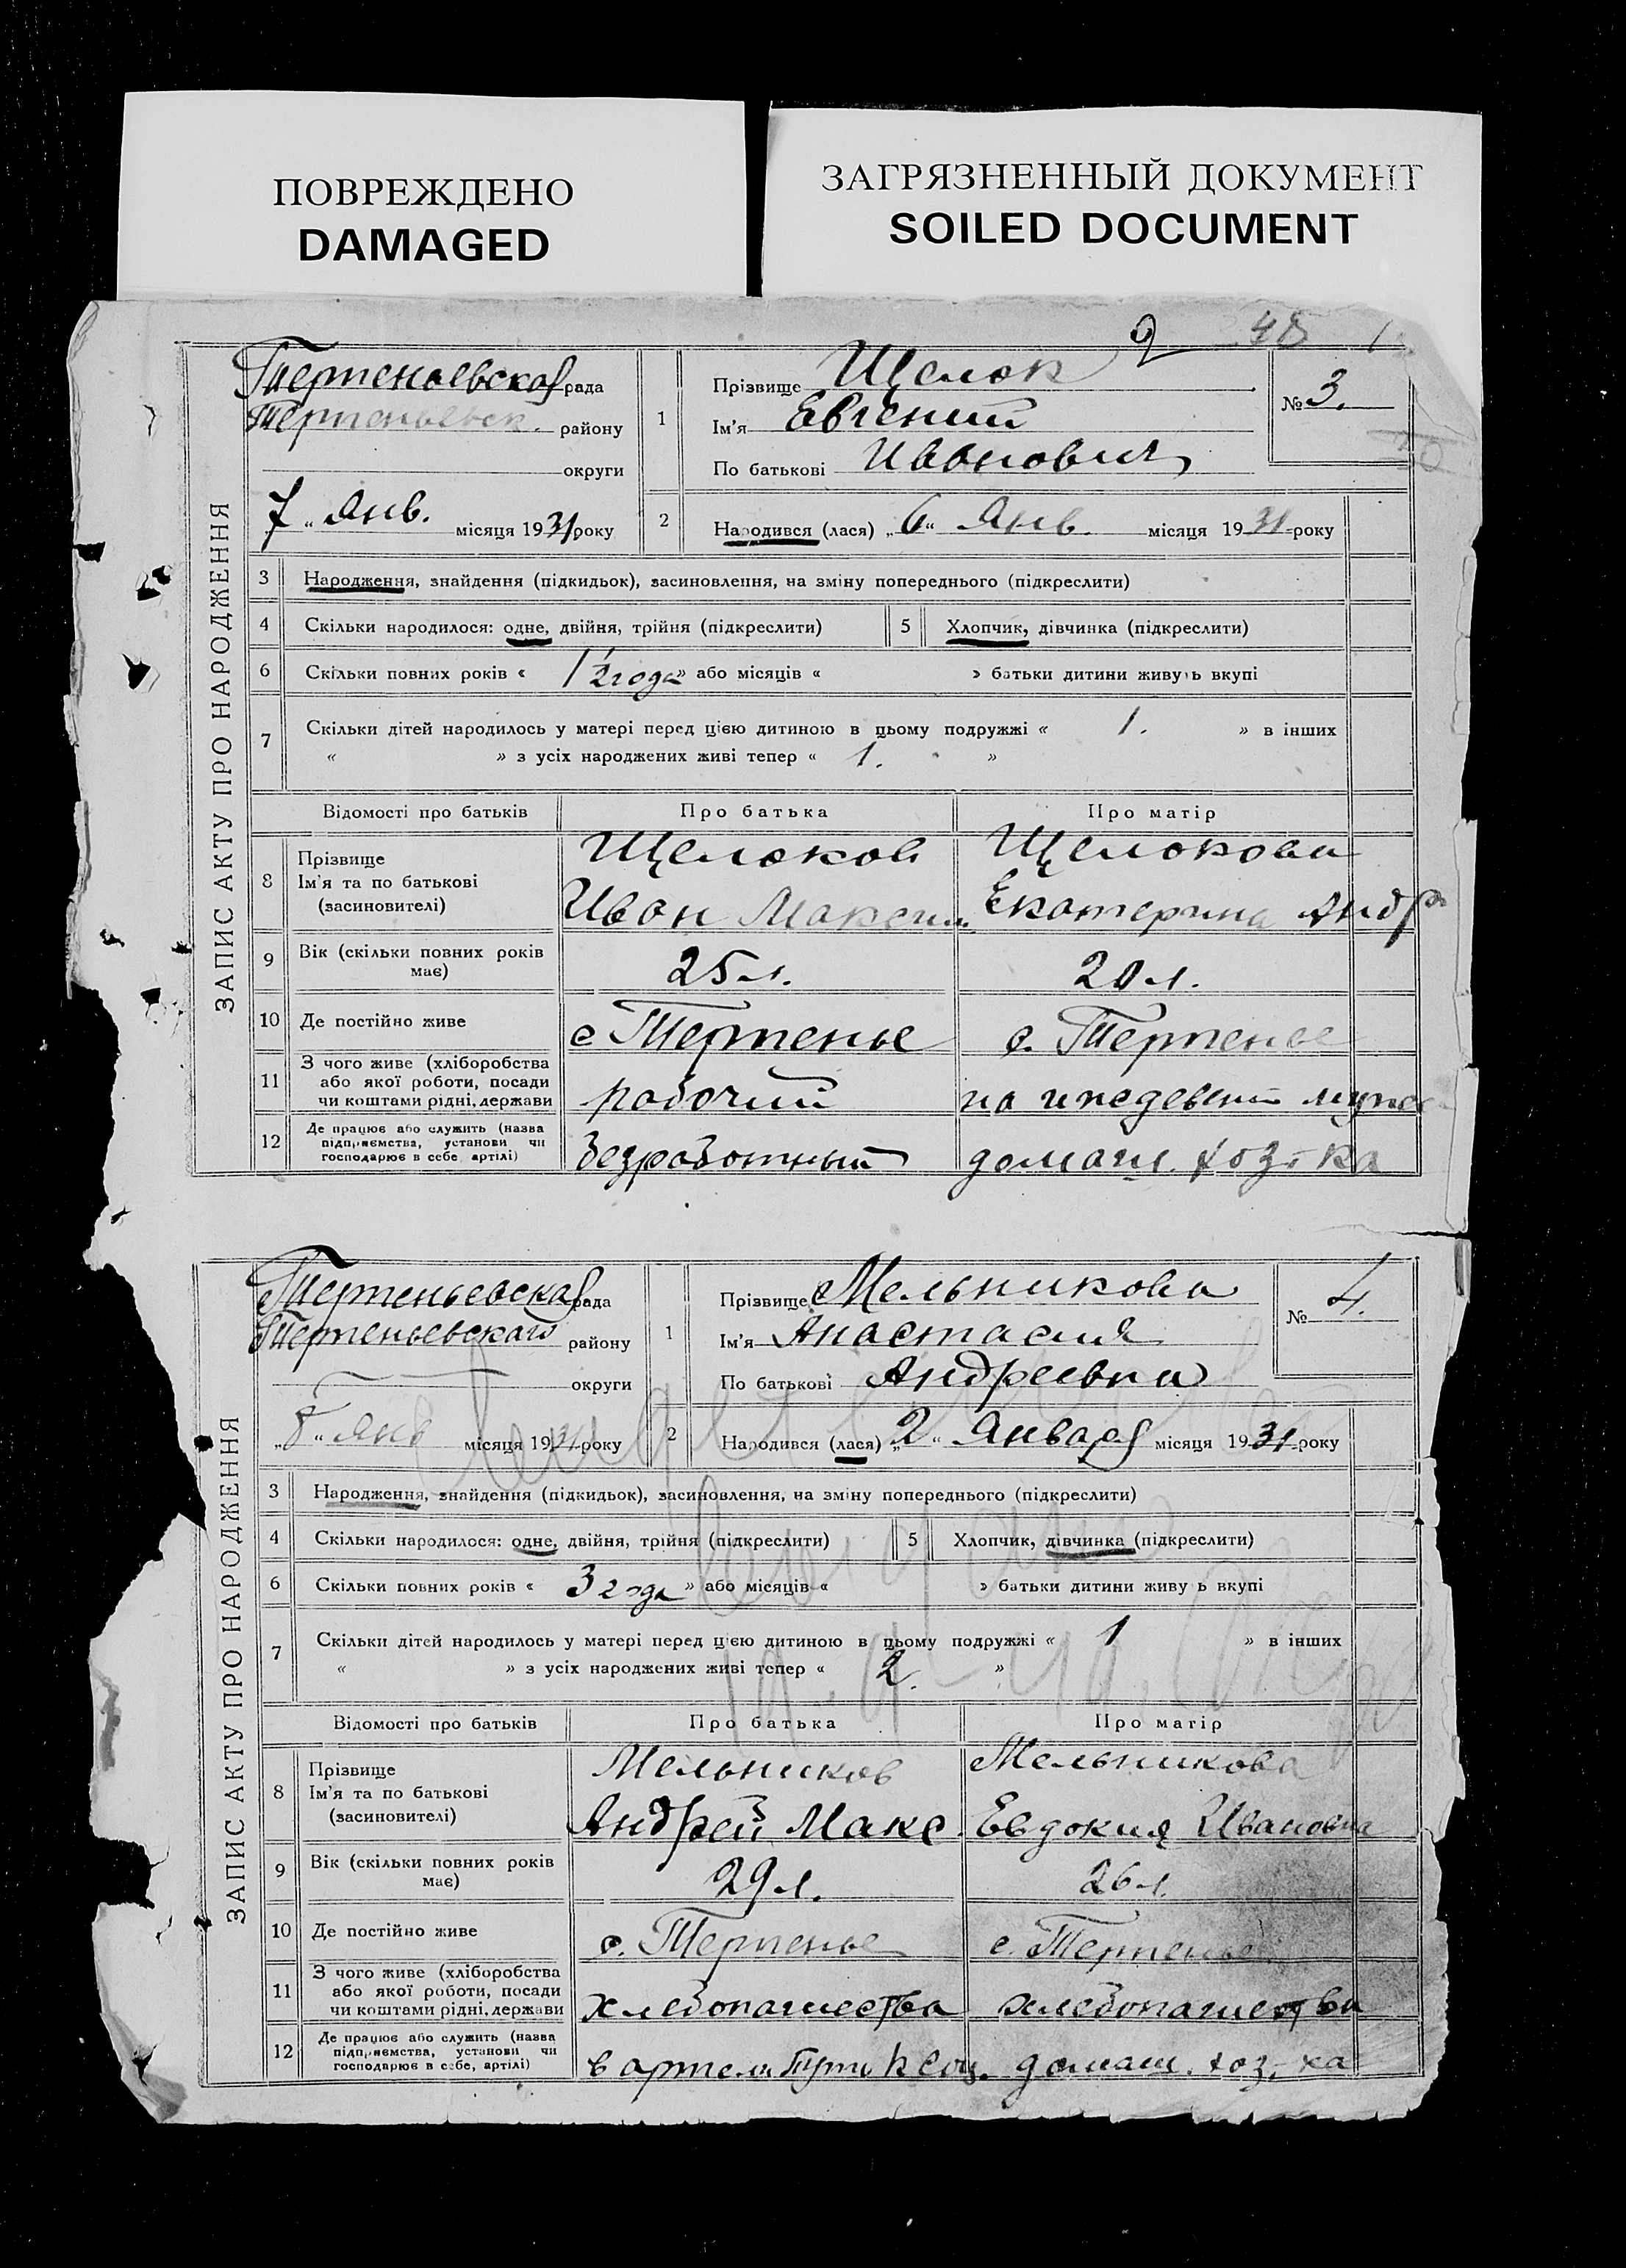 ПОВРЕЖДЕНО
DAMAGED
ЗАГРЯЗНЕННЫЙ ДОКУМЕНТ
SOILED DOCUMENT
ЗАПИС АКТУ ПРО НАРОДЖЕННЯ
Терпеньевская рада
Терпеньевск. району
округи
7 " Янв. місяця 1931 року
1
Прізвище Щелок
Ім'я Евгений
По батькові Иванович
№ 3.
2
Народився (лася) „6“ Янв. місяця 1931 року
3 Народження, знайдення (підкидьок), засиновлення, на зміну попереднього (підкреслити)
4 Скільки народилося: одне, двійня, трійня (підкреслити) 5 Хлопчик, дівчинка (підкреслити)
6 Скільки повних років « 1 1/2 года » або місяців « » батьки дитини живуть вкупі
7 Скільки дітей народилось у матері перед цією дитиною в цьому подружжі « 1. » в інших
« » з усіх народжених живі тепер « 1. »
Відомості про батьків Про батька Про матір
8 Прізвище Ім'я та по батькові (засиновителі) Щелоков Щелокова
Иван Максим. Екатерина Андр
9 Вік (скільки повних років має) 25 л. 20 л.
10 Де постійно живе с Терпенье с. Терпенье
11 З чого живе (хліборобства або якої роботи, посади чи коштами рідні, держави рабочий на иждевении мужа
12 Де працює або служить (назва підприємства, установи чи господарює в себе, артілі) безработный домаш. хоз-ка
ЗАПИС АКТУ ПРО НАРОДЖЕННЯ
Терпеньевская рада
Терпеньевскаго району
округи
„8“ Янв місяця 1931 року
1
Прізвище Мельникова
Ім'я Анастасия
По батькові Андреевна
№ 4.
2
Народився (лася) „2“ Января місяця 1931 року
3 Народження, знайдення (підкидьок), засиновлення, на зміну попереднього (підкреслити)
4 Скільки народилося: одне, двійня, трійня (підкреслити) 5 Хлопчик, дівчинка (підкреслити)
6 Скільки повних років « 3 года » або місяців « » батьки дитини живуть вкупі
7 Скільки дітей народилось у матері перед цією дитиною в цьому подружжі « 1 » в інших
« » з усіх народжених живі тепер « 2. »
Відомості про батьків Про батька Про матір
8 Прізвище Ім'я та по батькові (засиновителі) Мельников Мельникова
Андрей Макс. Евдокия Ивановна
9 Вік (скільки повних років має) 29 л. 26 л.
10 Де постійно живе с. Терпенье с. Терпенье
11 З чого живе (хліборобства або якої роботи, посади чи коштами рідні, держави хлебопашества хлебопашества
12 Де працює або служить (назва підприємства, установи чи господарює в себе, артілі) в артели Путь к соц. домаш. хоз-ка